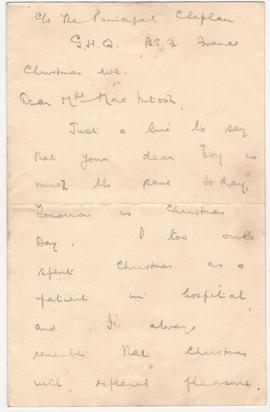 c/o The Principal Chaplain
G.H.Q. B.E.F. France
Christmas Eve.
Dear Mrs Mac Intosh,
Just a line to say
that your dear boy is
much the same to-day.
Tomorrow is Christmas
Day. I too once
spent Christmas as a
patient in hospital
and I always
remember that Christmas
with especial pleasure.